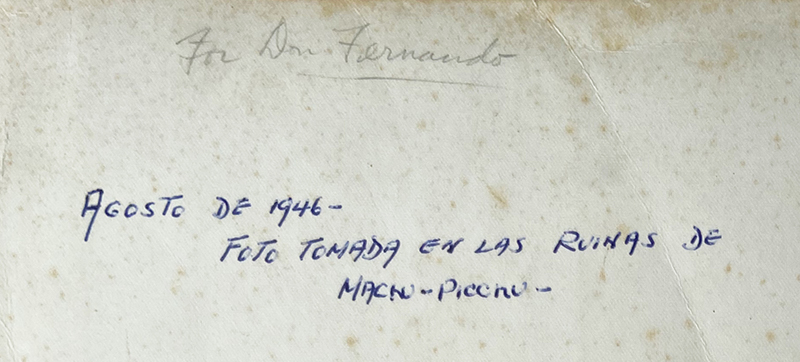 For Don Fernando
AGOSTO DE 1946-
FOTO TOMADA EN LAS RUINAS DE
MACHU-PICCHU-